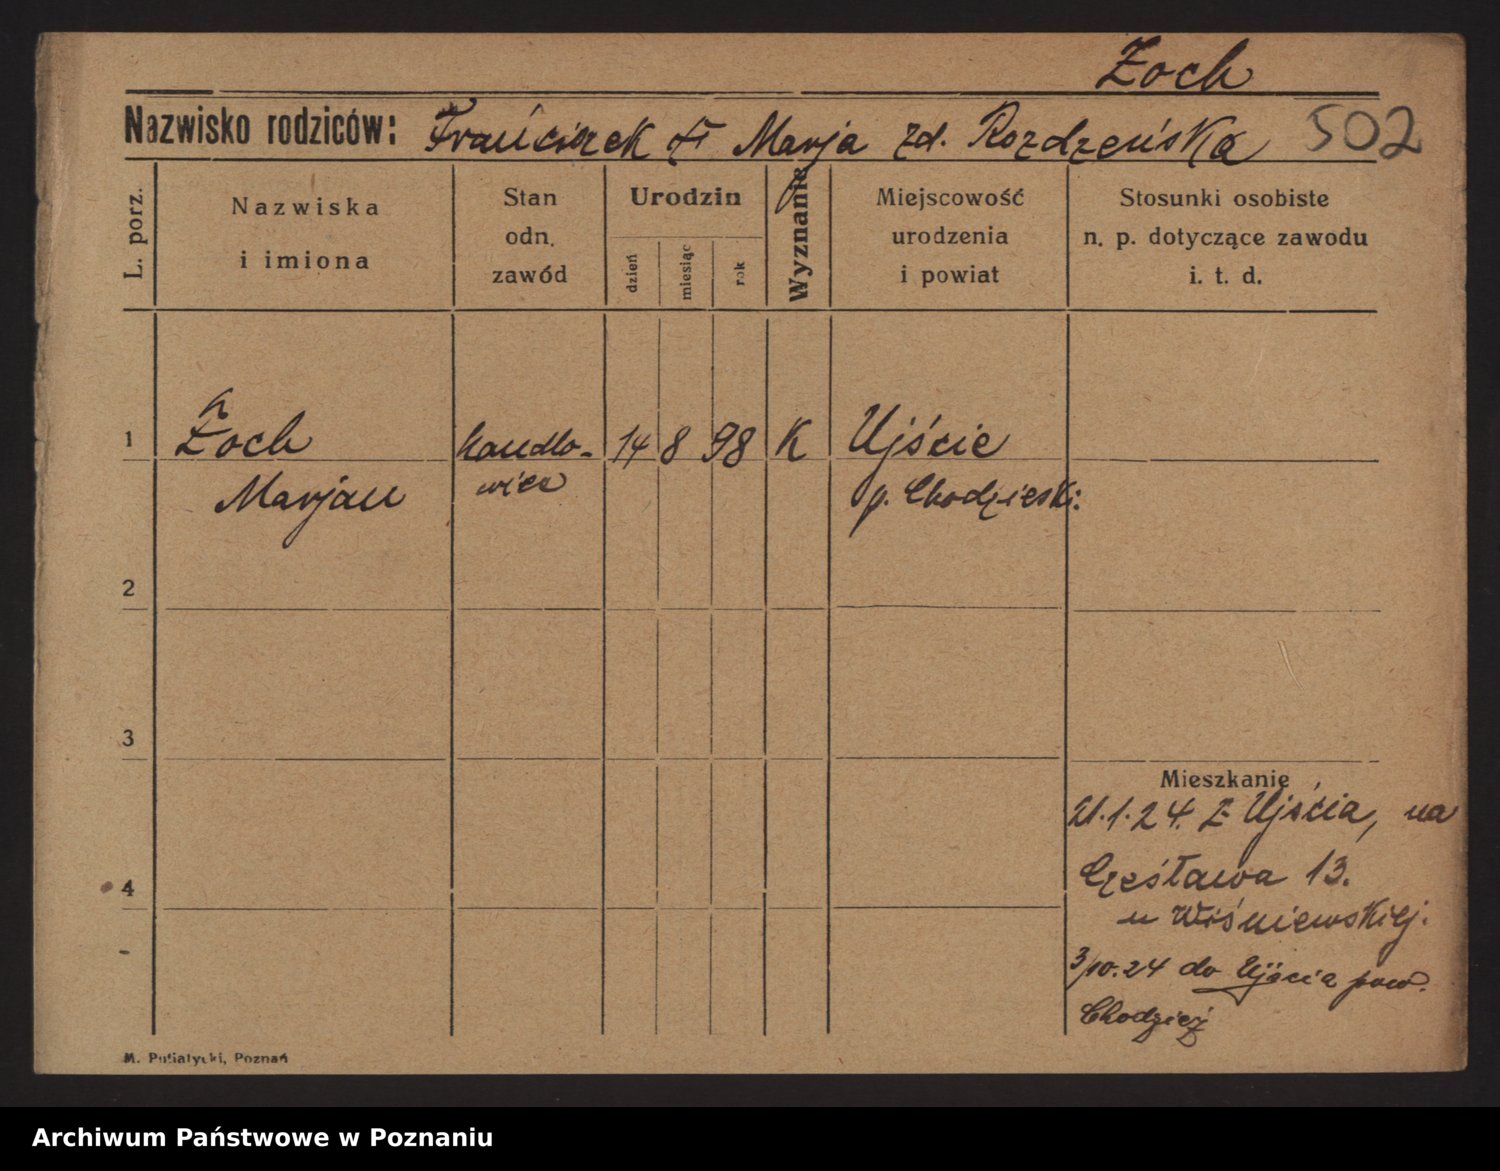 Żoch
Nazwisko rodziców: Franciszek i Marja zd. Rozdzeńska 502
L. porz.
Nazwiska
i imiona
Stan
odn.
zawód
Urodzin
dzień
miesiąc
rok
Wyznanie
Miejscowość
urodzenia
i powiat
Stosunki osobiste
n. p. dotyczące zawodu
i. t. d.
1 Żoch handlo- 14 8 98 K Ujście
Marjan wiec p. Chodzieski:
2
3
Mieszkanie
21.1.24. z Ujścia, na
4 Częsława 13.
u Wiśniewskiej.
3/10.24 do Ujścia pow.
Chodzież
M. Putiatycki, Poznań
Archiwum Państwowe w Poznaniu